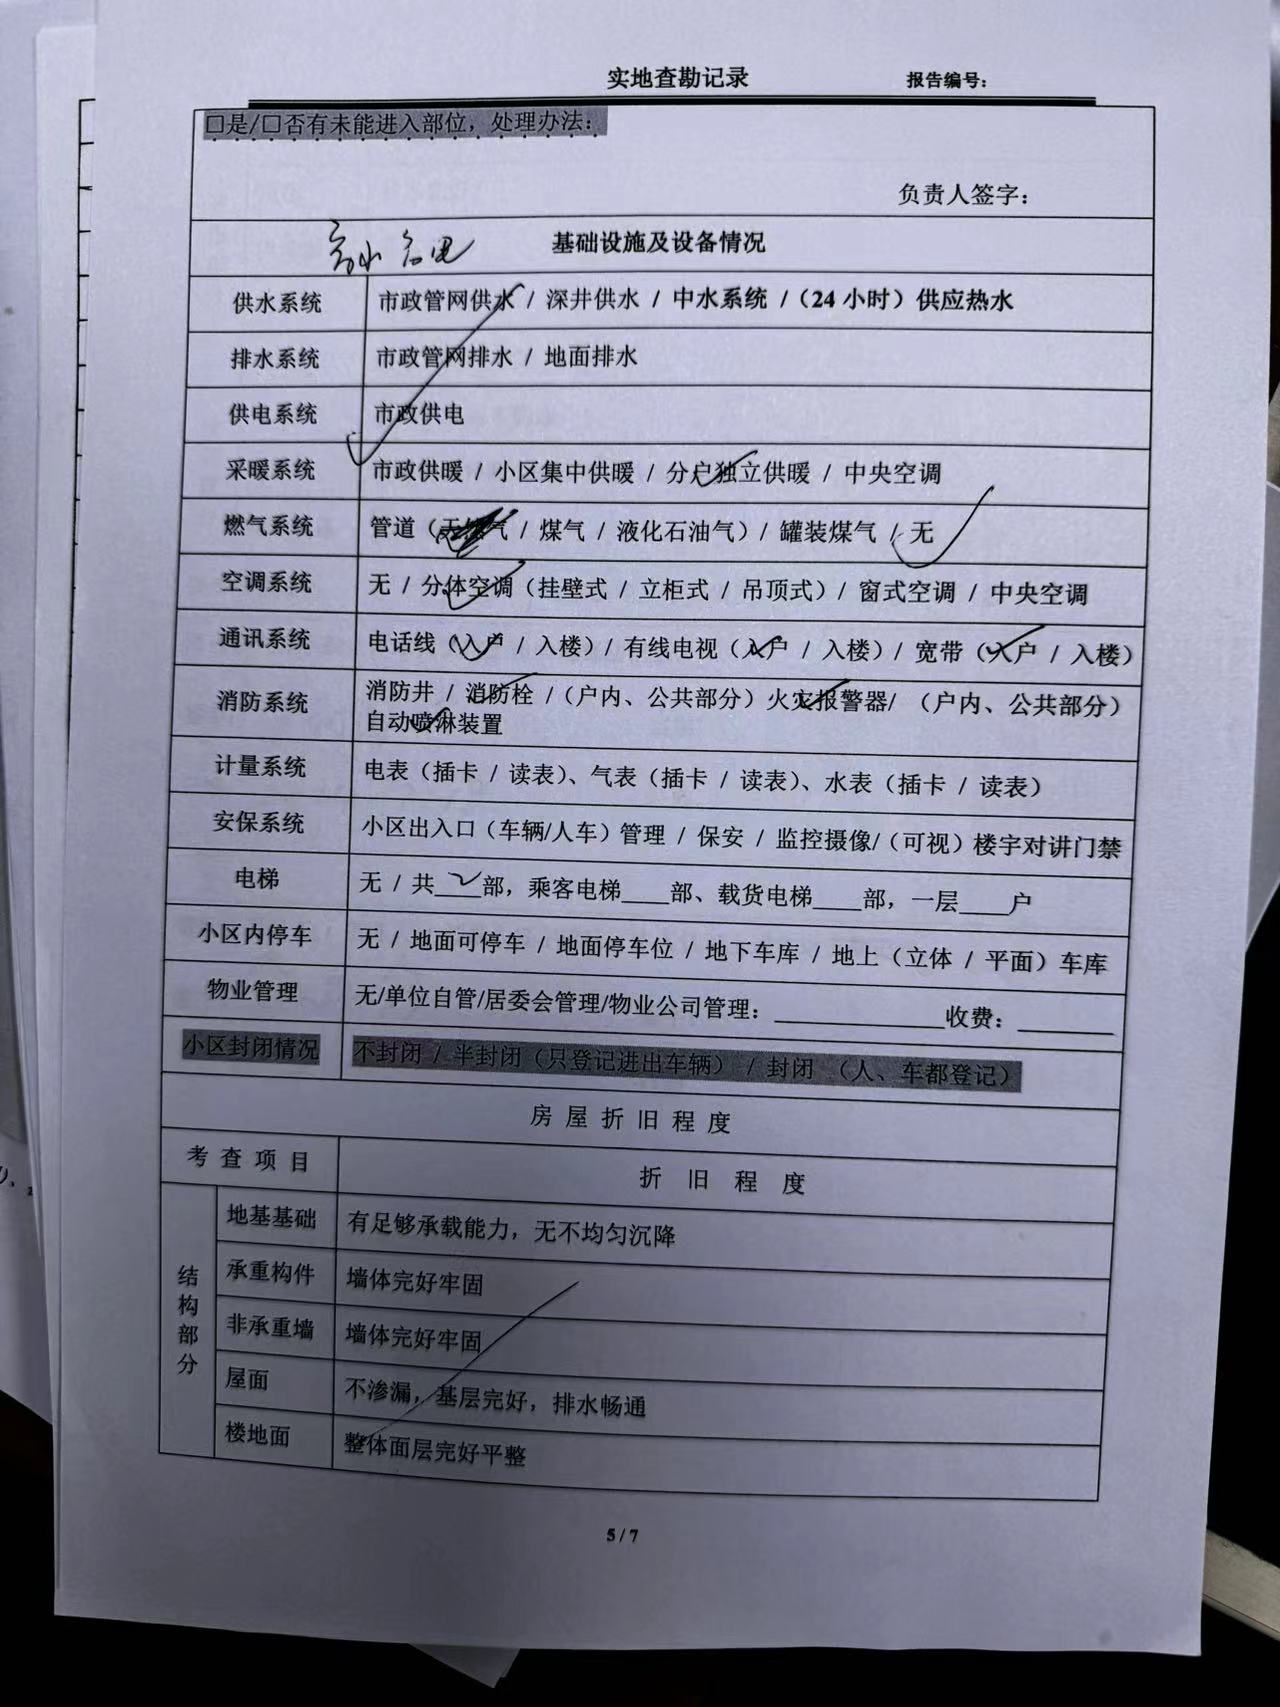 实地查勘记录 报告编号：
□是/□否有未能进入部位，处理办法：
负责人签字：
基础设施及设备情况
供水系统 市政管网供水 / 深井供水 / 中水系统 /（24 小时）供应热水
排水系统 市政管网排水 / 地面排水
供电系统 市政供电
采暖系统 市政供暖 / 小区集中供暖 / 分户独立供暖 / 中央空调
燃气系统 管道（天然气 / 煤气 / 液化石油气）/ 罐装煤气 / 无
空调系统 无 / 分体空调（挂壁式 / 立柜式 / 吊顶式）/ 窗式空调 / 中央空调
通讯系统 电话线（入户 / 入楼）/ 有线电视（入户 / 入楼）/ 宽带（入户 / 入楼）
消防系统 消防井 / 消防栓 /（户内、公共部分）火灾报警器/ （户内、公共部分）
自动喷淋装置
计量系统 电表（插卡 / 读表）、气表（插卡 / 读表）、水表（插卡 / 读表）
安保系统 小区出入口（车辆/人车）管理 / 保安 / 监控摄像/（可视）楼宇对讲门禁
电梯 无 / 共____部，乘客电梯____部、载货电梯____部，一层____户
小区内停车 无 / 地面可停车 / 地面停车位 / 地下车库 / 地上（立体 / 平面）车库
物业管理 无/单位自管/居委会管理/物业公司管理：______________收费：________
小区封闭情况 不封闭 / 半封闭（只登记进出车辆） / 封闭 （人、车都登记）
房屋折旧程度
考查项目 折旧程度
结构部分
地基基础 有足够承载能力，无不均匀沉降
承重构件 墙体完好牢固
非承重墙 墙体完好牢固
屋面 不渗漏，基层完好，排水畅通
楼地面 整体面层完好平整
5 / 7